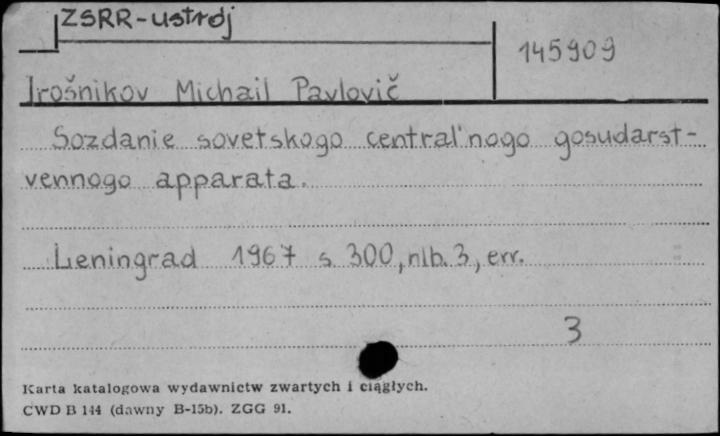 ZSRR-ustrój
145909
Irošnikov Michail Pavlovič
Sozdanie sovetskogo central'nogo gosudarst-
vennogo apparata.
Leningrad 1967 s. 300, nlb. 3, err.
3
Karta katalogowa wydawnictw zwartych i ciągłych.
CWD B 144 (dawny B-15b). ZGG 91.